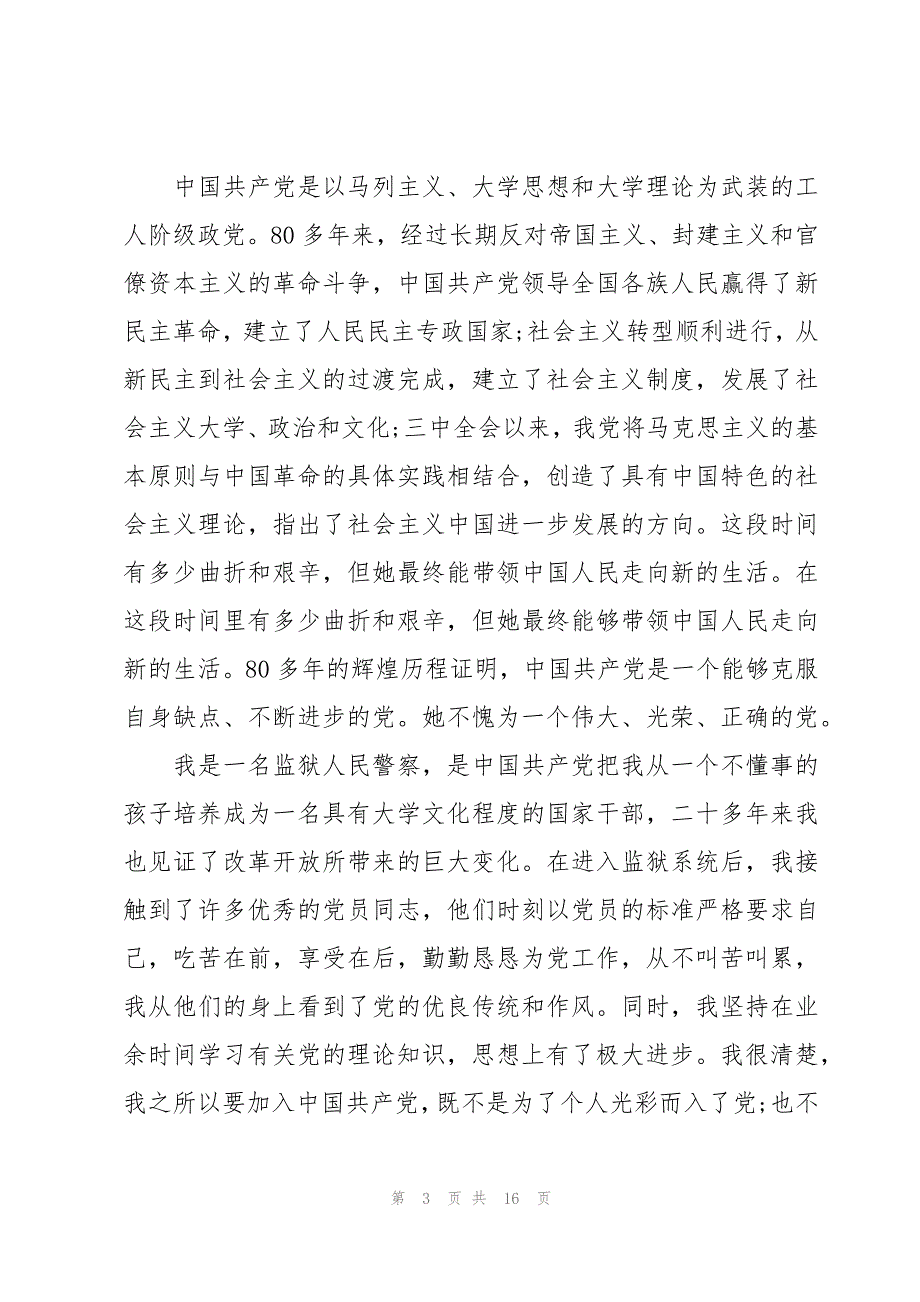 中国共产党是以马列主义、大学思想和大学理论为武装的工
人阶级政党。80 多年来，经过长期反对帝国主义、封建主义和官
僚资本主义的革命斗争，中国共产党领导全国各族人民赢得了新
民主革命，建立了人民民主专政国家;社会主义转型顺利进行，从
新民主到社会主义的过渡完成，建立了社会主义制度，发展了社
会主义大学、政治和文化;三中全会以来，我党将马克思主义的基
本原则与中国革命的具体实践相结合，创造了具有中国特色的社
会主义理论，指出了社会主义中国进一步发展的方向。这段时间
有多少曲折和艰辛，但她最终能带领中国人民走向新的生活。在
这段时间里有多少曲折和艰辛，但她最终能够带领中国人民走向
新的生活。80 多年的辉煌历程证明，中国共产党是一个能够克服
自身缺点、不断进步的党。她不愧为一个伟大、光荣、正确的党。
我是一名监狱人民警察，是中国共产党把我从一个不懂事的
孩子培养成为一名具有大学文化程度的国家干部，二十多年来我
也见证了改革开放所带来的巨大变化。在进入监狱系统后，我接
触到了许多优秀的党员同志，他们时刻以党员的标准严格要求自
己，吃苦在前，享受在后，勤勤恳恳为党工作，从不叫苦叫累，
我从他们的身上看到了党的优良传统和作风。同时，我坚持在业
余时间学习有关党的理论知识，思想上有了极大进步。我很清楚，
我之所以要加入中国共产党，既不是为了个人光彩而入了党;也不
第 3 页 共 16 页